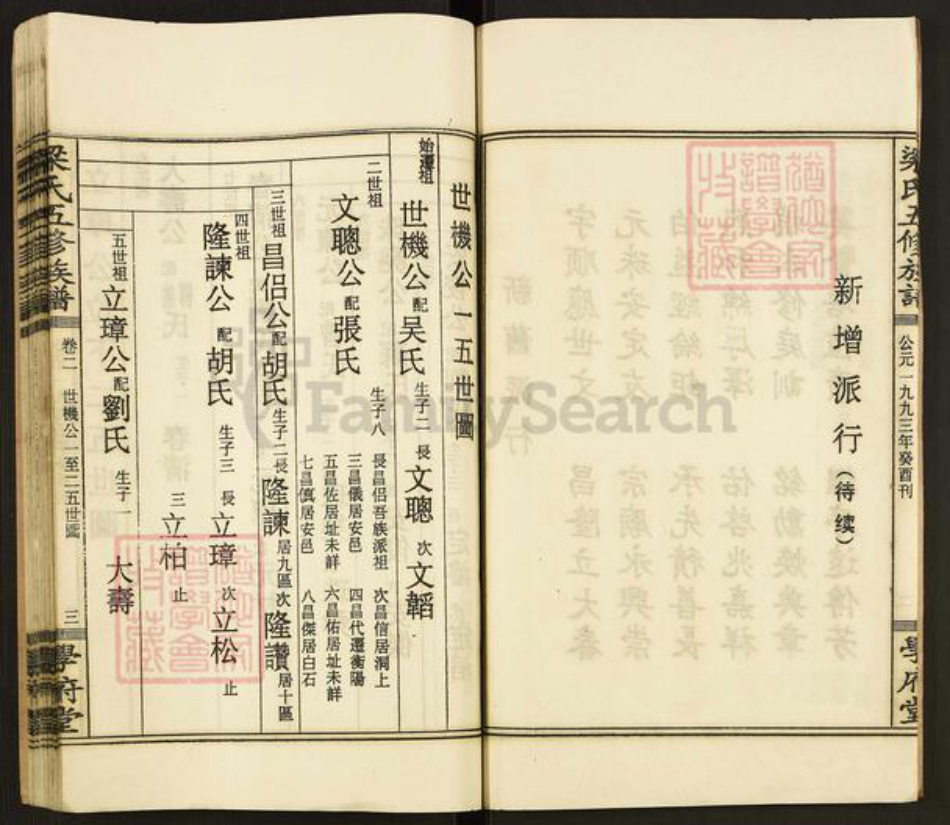 梁氏五修族譜
公元一九九三年癸酉刊
學府堂
新增派行(待续)
世機公一五世圖
始遷祖
世機公配吴氏 生子二 長文聰 次文韜
二世祖
文聰公配張氏 生子八
長昌侶吾族派祖 次昌信居洞上
三昌儀居安邑 四昌代遷衡陽
五昌佐居址未詳 六昌佑居址未詳
七昌慎居安邑 八昌傑居白石
三世祖 昌侶公配胡氏 生子二 長隆諫居九區 次隆讚居十區
四世祖
隆諫公配胡氏 生子三 長立璋 次立松 止
三立柏 止
五世祖 立璋公配劉氏 生子一 大壽
梁氏五修族譜
卷二 世機公一至二五世圖 三
學府堂
FamilySearch